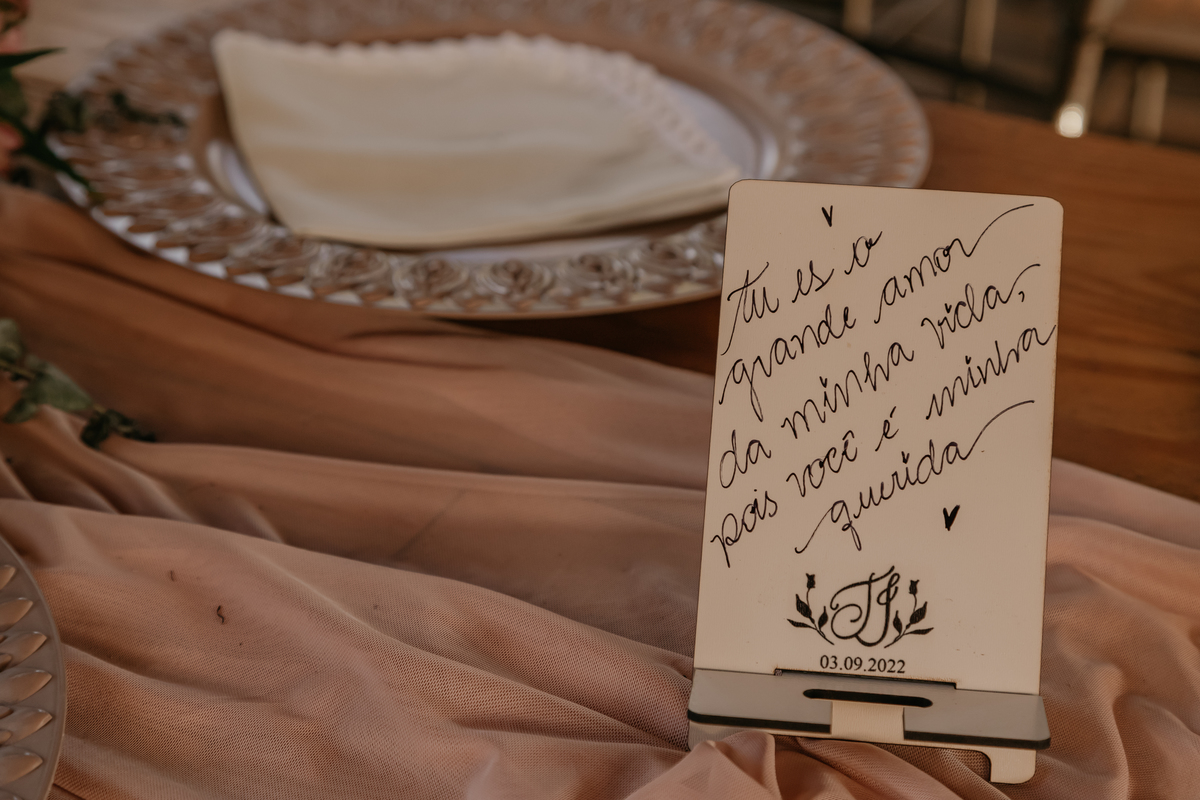 tu es o
grande amor
da minha vida,
pois você é minha
querida
TJ
03.09.2022